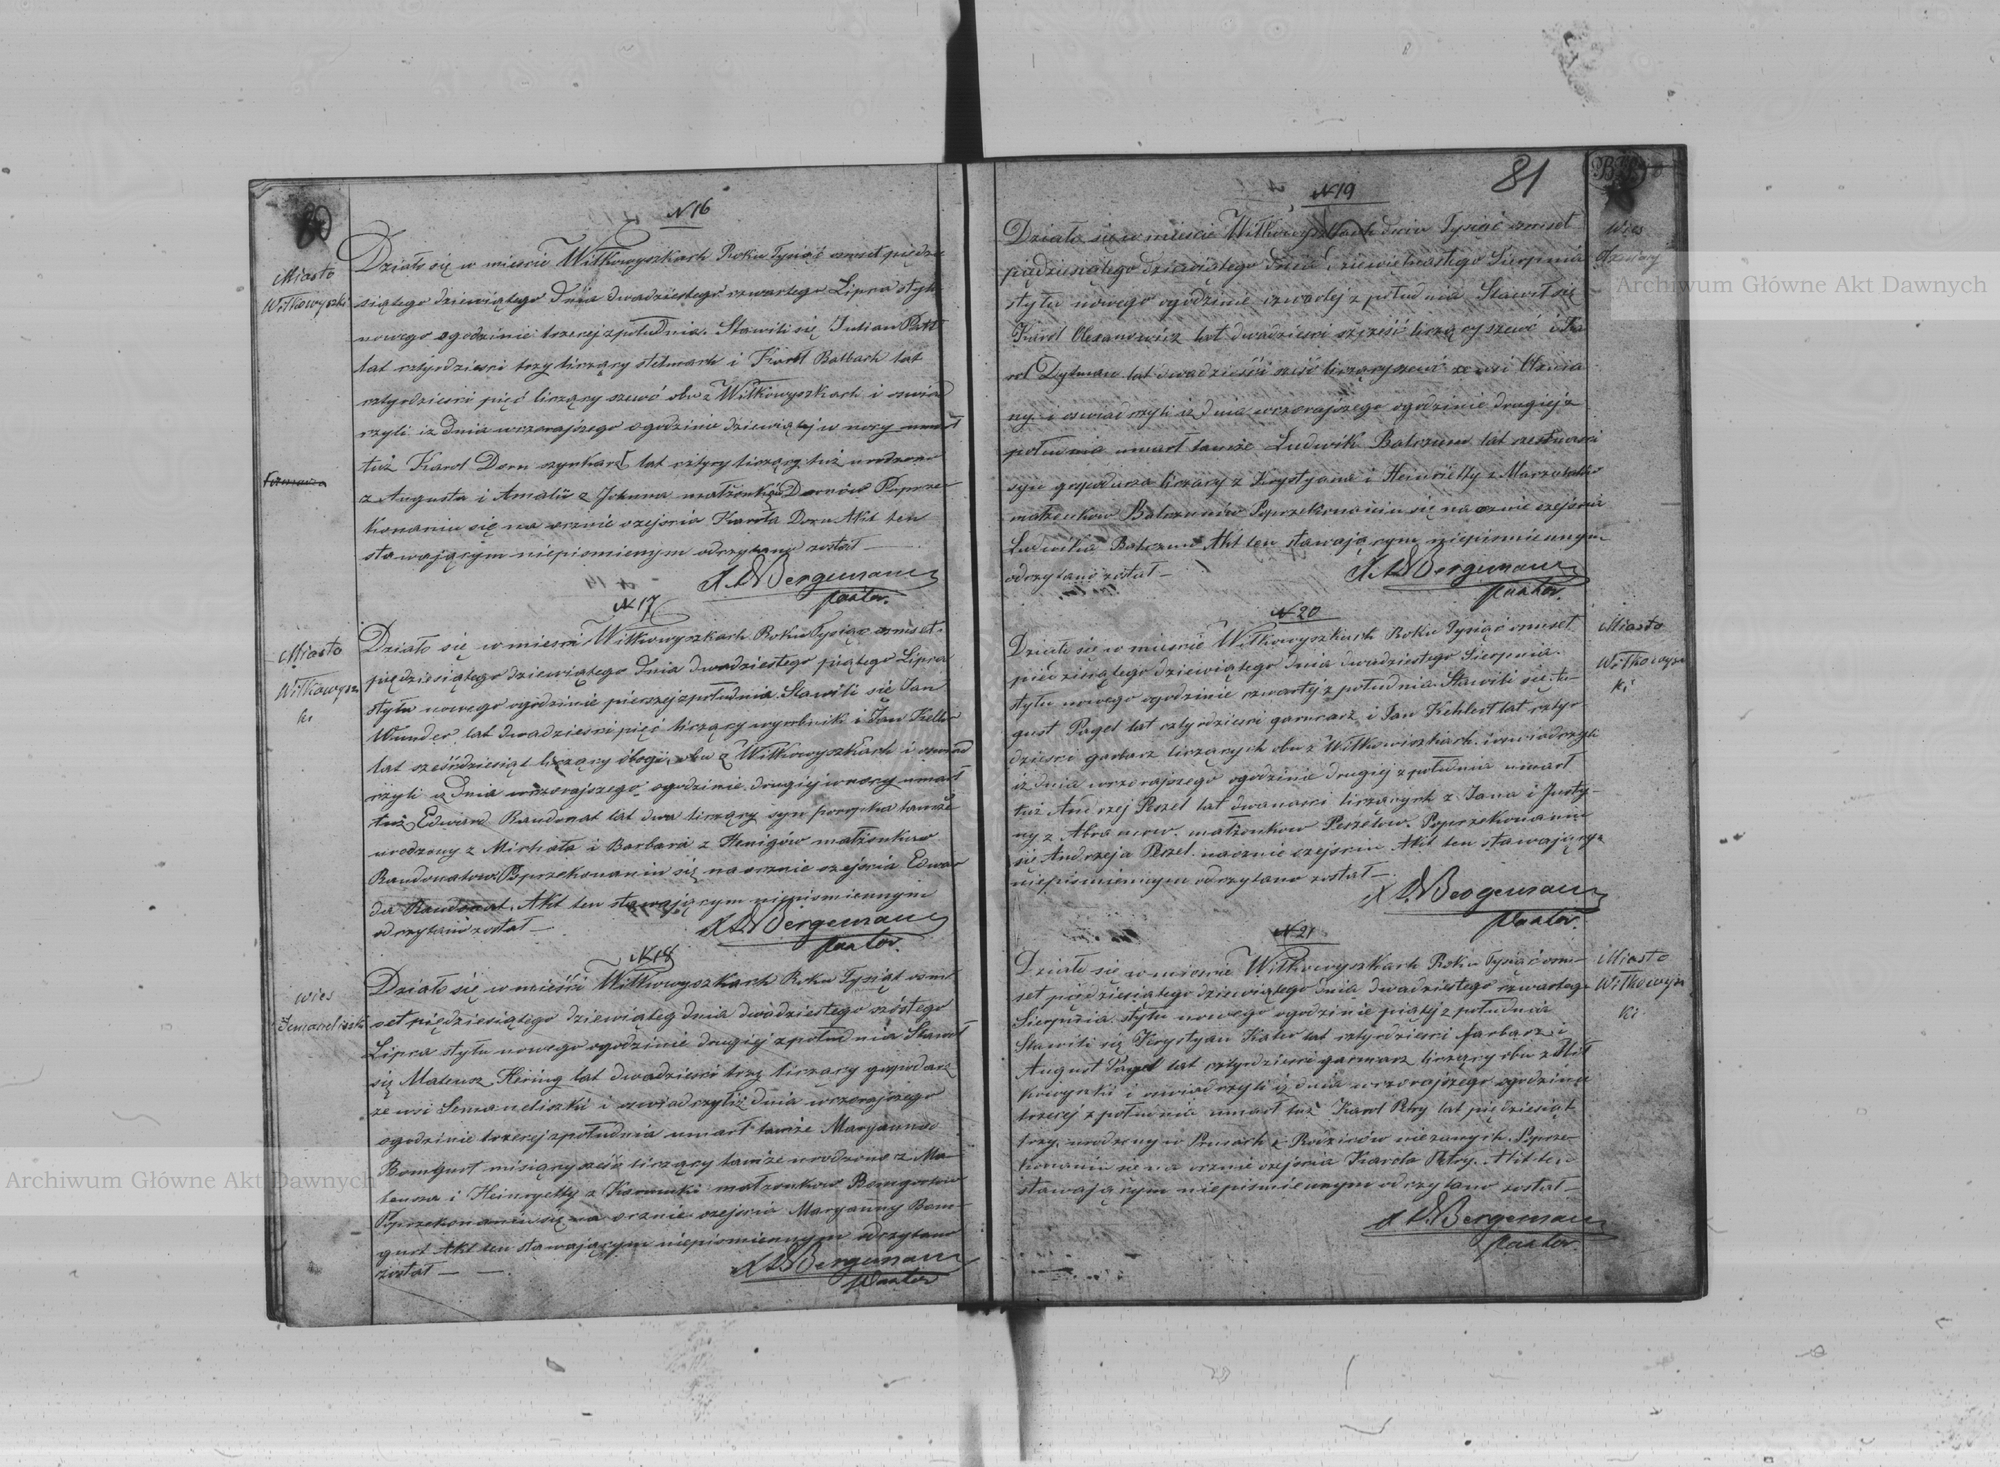 80
N 16
Miasto
Wiłkowyszki
Działo się w mieście Wiłkowyszkach Roku Tysiąć osmset piędzie
siątego dziewiątego Dnia dwadziestego czwartego Lipca stylu
nowego o godzinie trzeciej z południa. Stawili się Julian
lat czterdzieści trzy liczący stelmach i Karol Balbach lat
czterdzieści pięć liczący szewc obu z Wiłkowyszkach i oswiad
czyli iz Dnia wczorajszego o godzinie dziewiątej w nocy umarł
tuż Karol Dorn lat cztery liczący tuż urodzony
z Augusta i Amalii z małżonków Dornów Poprze
konaniu się na ocznie zejscia Karola Dorn Akt ten
stawającym niepismienym odczytano został —
Bergemann
Pastor.
N 17
Miasto
Wiłkowysz
ki
Działo się w miescie Wiłkowyszkach Roku Tysiąc osmset
piędziesiątego dziewiątego Dnia dwadziestego piątego Lipca
stylu nowego o godzinie pierszej z południa. Stawili się Jan
Wunder lat dwadziesci pięć liczący wyrobnik i Jan Keller
lat sześćdziesiąt liczący obu z Wiłkowyszkach i oswiad
czyli iz Dnia wczorajszego o godzinie drugiej w nocy umarł
tuż Edward Raudonat lat dwa liczący syn tamże
urodzony z Michała i Barbara z Henigów małżonków
Raudonatow. Poprzekonaniu się na ocznie zejscia Edwar
da Raudonat. Akt ten stawającym niepismiennym
odczytano został —
Bergemann
Pastor.
N 18
wies
Działo się w mieście Wiłkowyszkach Roku Tysiąt osm
set piędziesiątego dziewiąteg dnia dwadziestego szóstego
Lipca stylu nowego o godzinie drugiej z południa Stawił
się Mateusz Hering lat dwadziescie trzy liczący gospodarz
ze wsi Semaneliszki i oswiadczył iż dnia wczorajszego
o godzinie trzeciej z południa umarł tamże Maryanna
Bomgurt miesiący sześć liczący tamże urodzona z Ma
teusza i Heinryetty z małżonków
Poprzekonaniu się na ocznie zejscia Maryanny Bom
gurt Akt ten stawającym niepismiennym odczytano
został —
Bergemann
Pastor
81
N 19
wies
Działo się w miescie Wiłkowyszkach dnia Tysiąć osmset
pędziesiątego dziewiątego dnia dziewiętnastego Sierpnia
stylu nowego o godzinie czwartej z południa Stawił się
Karol Olexanowicz lat dwadziesci szesć liczący szewc i Ka
rol Dytman lat dwadzieści sześć liczący szewc ze wsi
ny i oswiadczyli iz dnia wczorajszego o godzinie drugiej z
południa umarł tamże Ludwik Balczun lat
syn gospodarza liczący z Krystyana i Heinrietty z
małżonków Balczunów Poprzekonaniu się na ocznie zejscia
Ludwika Balczun Akt ten stawającym niepismiennym
odczytano został —
Bergemann
Pastor.
N 20
Miasto
Wiłkowysz
ki
Działo się w miescie Wiłkowyszkach Roku Tysiąć osmset
pięedziesiątego dziewiątego dnia dwadziestego Sierpnia
stylu nowego o godzinie czwartej z południa Stawili się Au
gust Pagel lat czterdziesci garncarz i Jan Kehlert lat czter
dziesci garbarz liczących obu z Wiłkowiszkach i oswiadczyli
iz dnia wczorajszego o godzinie drugiej z południa umarł
tuż Andrzej Peszel lat dwanasci liczących z Jana i Justy
ny z małżonków Peszelow. Poprzekonaniu
się Andrzeja Peszel naocznie zejsciu Akt ten stawającym
niepismiennym odczytano został —
Bergemann
Pastor.
N 21
Miasto
Wiłkowysz
ki
Działo się w miescie Wiłkowyszkach Roku Tysiąć osm
set pięćdziesiątego dziewiątego dnia dwadziestego czwartego
Sierpnia stylu nowego o godzinie piątej z południa
Stawili się Krystyan lat czterdziesci farbarz i
August Pagel lat czterdziesci garncarz liczący obu z Wił
kowyszki i oswiadczyli iz dnia wczorajszego o godzinie
trzeciej z południa umarł tuż Karol Petry lat pięćdziesiąt
trzy urodzony w Prusach z Rodziców nieznanych. Poprze
konaniu się na ocznie zejscia Karola Petry. Akt ten
stawającym niepismiennym odczytano został —
Bergemann
Pastor.
Archiwum Główne Akt Dawnych
Archiwum Główne Akt Dawnych